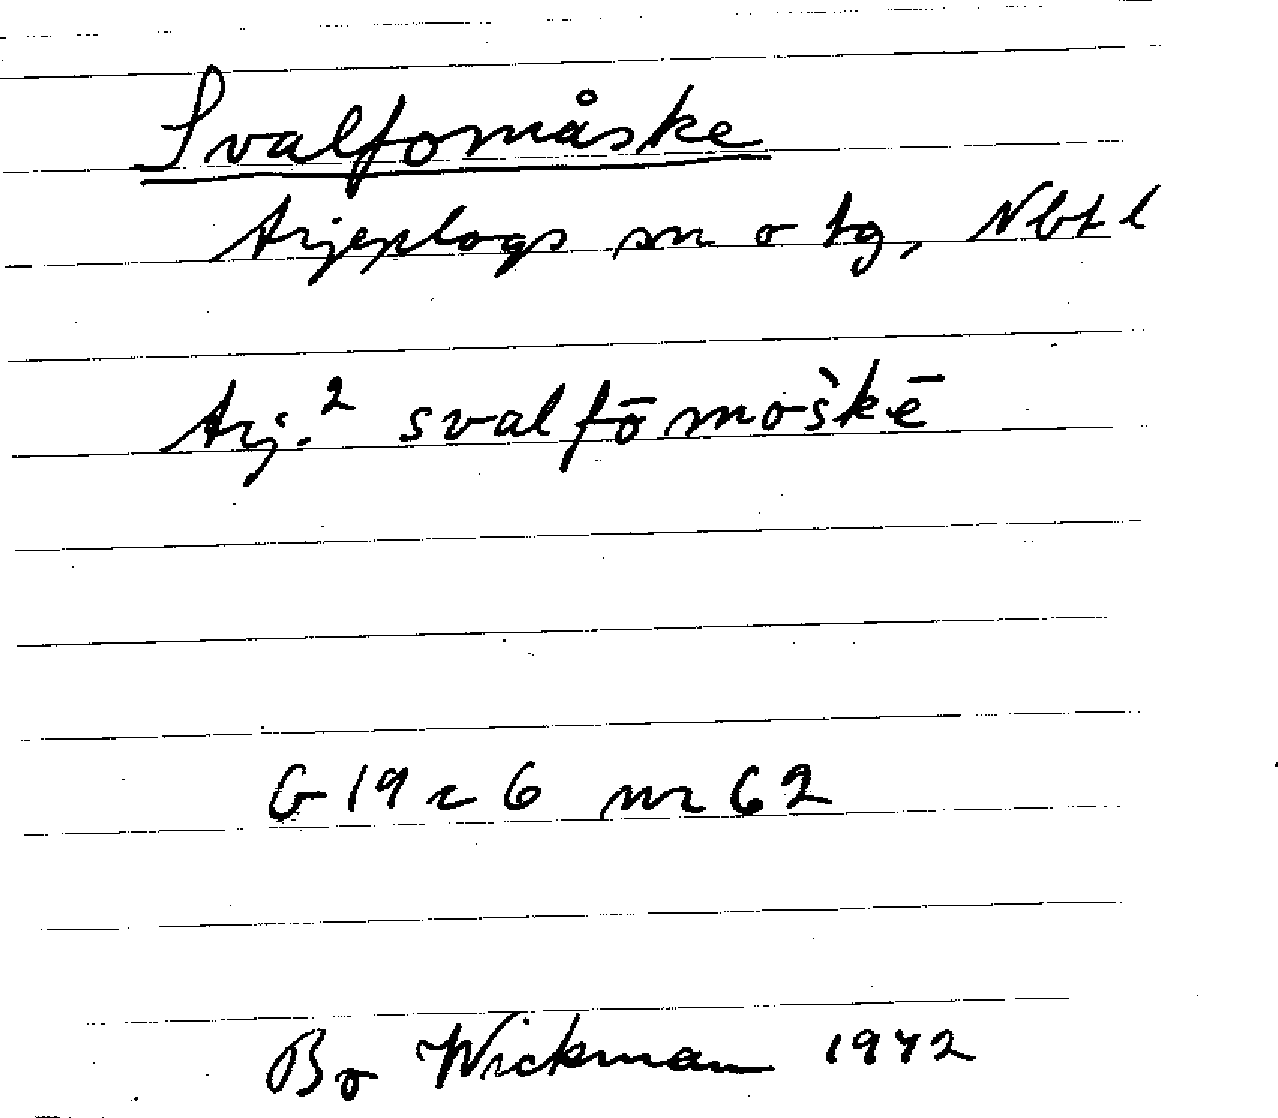 Svalfomåske
Arjeplogs sn o tg, Nbtl
Arj.² svalfōmoš̀kē
G 19 c 6 nr 62
Bo Wickman 1942